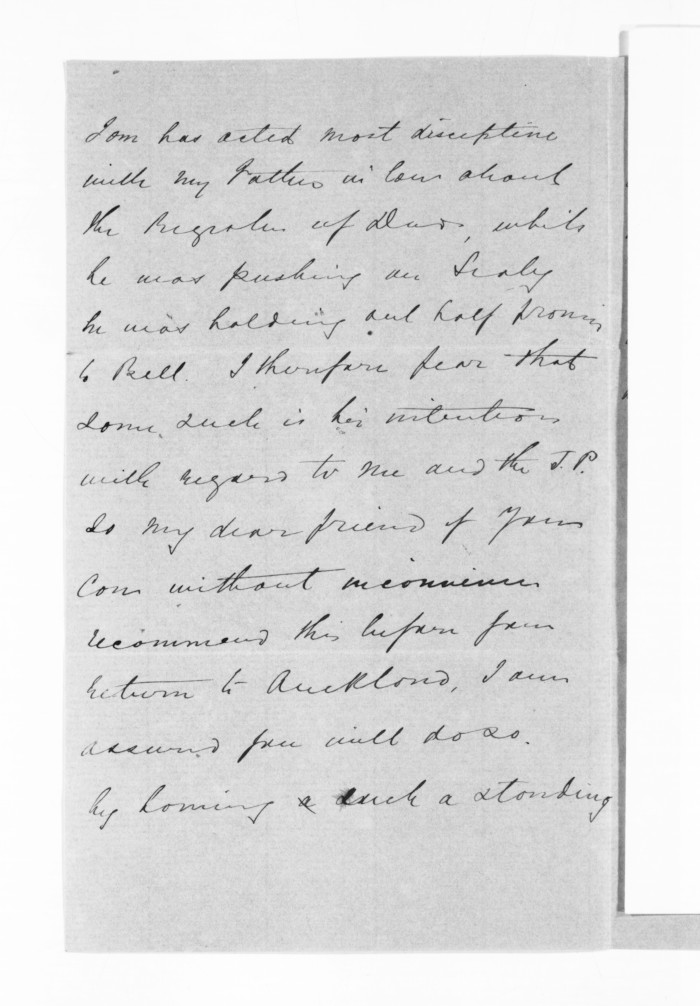 Tom has acted most disceptive
with my Father in law about
the Registrar of Deeds, whils
he was pushing on Sealy
he was holding out half promis
to Bell. I therefore fear that
some such is his intention
with regard to me and the J.P.
So my dear friend if you
can without inconvenience
recommend this before your
return to Auckland, I am
assured you will do so.
by having a such a standing